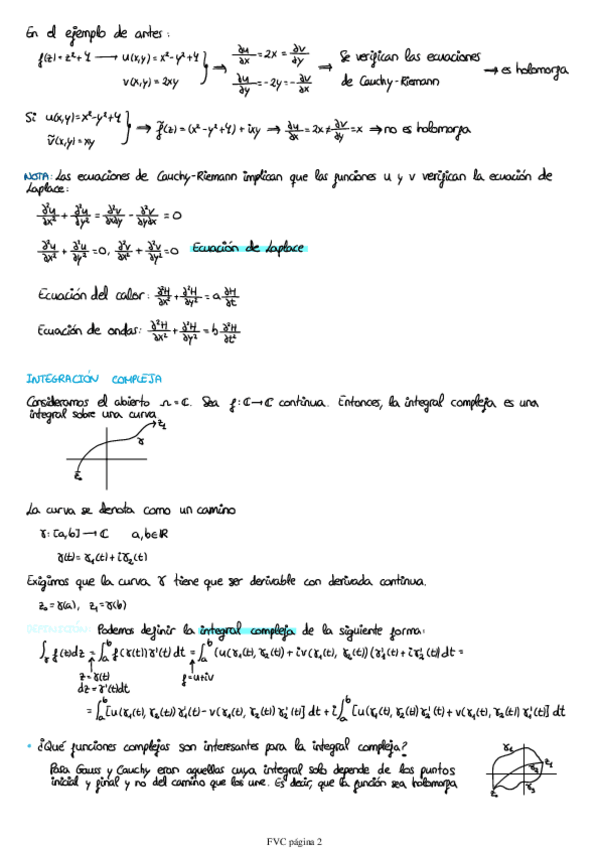 En el ejemplo de antes:
f(z)=z²+4 → u(x,y)=x²-y²+4
v(x,y)=2xy
} → ∂u/∂x=2x=∂v/∂y
∂u/∂y=-2y=-∂v/∂x
→ Se verifican las ecuaciones
de Cauchy-Riemann
→ es holomorfa
Si u(x,y)=x²-y²+4
ṽ(x,y)=xy
} → f̃(z)=(x²-y²+4)+ixy → ∂u/∂x=2x≠∂v/∂y=x → no es holomorfa
NOTA: Las ecuaciones de Cauchy-Riemann implican que las funciones u y v verifican la ecuación de
Laplace:
∂²u/∂x² + ∂²u/∂y² = ∂²v/∂x∂y - ∂²v/∂y∂x = 0
∂²u/∂x² + ∂²u/∂y² = 0, ∂²v/∂x² + ∂²v/∂y² = 0 Ecuación de Laplace
Ecuación del calor: ∂²H/∂x² + ∂²H/∂y² = a ∂H/∂t
Ecuación de ondas: ∂²H/∂x² + ∂²H/∂y² = b ∂²H/∂t²
INTEGRACIÓN COMPLEJA
Consideramos el abierto Ω=ℂ. Sea f:ℂ→ℂ continua. Entonces, la integral compleja es una
integral sobre una curva
z₁
γ
z₀
La curva se denota como un camino
γ:[a,b]→ℂ a,b∈ℝ
γ(t)=γ₁(t)+iγ₂(t)
Exigimos que la curva γ tiene que ser derivable con derivada continua.
z₀=γ(a), z₁=γ(b)
DEFINICIÓN: Podemos definir la integral compleja de la siguiente forma:
∫_γ f(z)dz = ∫_a^b f(γ(t))γ'(t)dt = ∫_a^b (u(γ₁(t), γ₂(t))+iv(γ₁(t), γ₂(t))(γ₁'(t)+iγ₂'(t)dt =
z=γ(t)
dz=γ'(t)dt
f=u+iv
= ∫_a^b [u(γ₁(t), γ₂(t))γ₁'(t)-v(γ₁(t), γ₂(t))γ₂'(t)] dt + i∫_a^b [u(γ₁(t), γ₂(t))γ₂'(t)+v(γ₁(t), γ₂(t))γ₁'(t)] dt
• ¿Qué funciones complejas son interesantes para la integral compleja?
Para Gauss y Cauchy eran aquellas cuya integral solo depende de los puntos
inicial y final y no del camino que los une. Es decir, que la función sea holomorfa
γ₁
z₁
γ₂
γ₃
z₀
FVC página 2